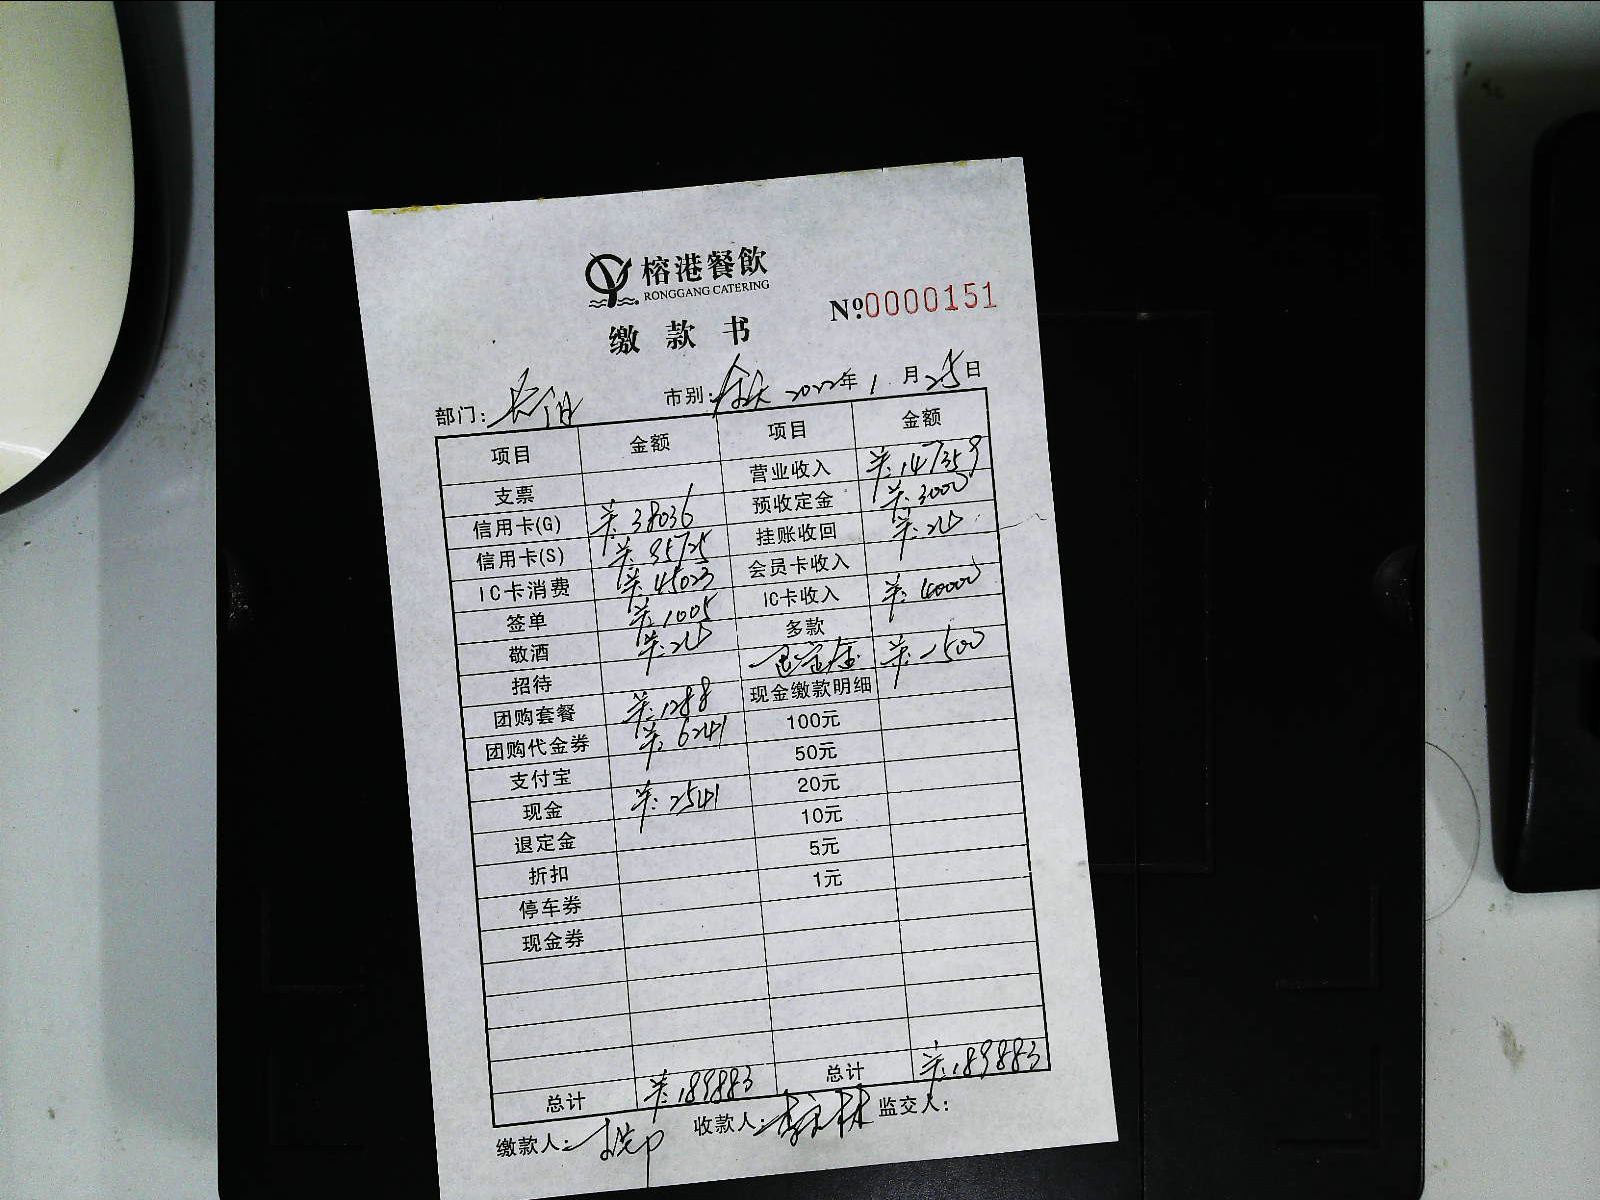 榕港餐飲
RONGGANG CATERING
№0000151
缴款书
部门: 市别: 全天 2022年 1 月 25 日
项目 金额 项目 金额
支票 营业收入 ¥:147359
信用卡(G) ¥:38036 预收定金 ¥:3000
信用卡(S) ¥:95725 挂账收回 ¥:24
IC卡消费 ¥:45023 会员卡收入
签单 ¥:1005 IC卡收入 ¥:40000
敬酒 ¥:24 多款
招待 退定金 ¥:-500
团购套餐 ¥:1288 现金缴款明细
团购代金券 ¥:6241 100元
支付宝 50元
现金 ¥:2541 20元
退定金 10元
折扣 5元
停车券 1元
现金券
总计 ¥:189883 总计 ¥:189883
缴款人: 收款人: 监交人: